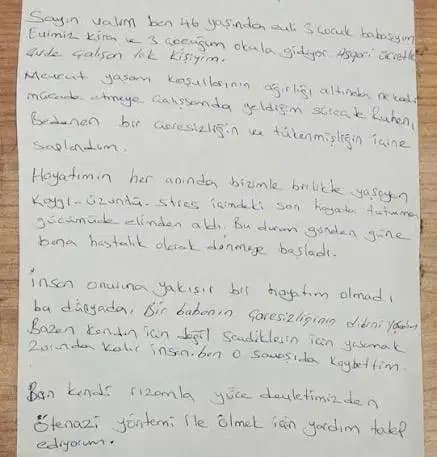 Sayın valim ben 46 yaşında evli 3 çocuk babasıyım
Evimiz kira ve 3 çocuğum okula gidiyor Asgari ücretle
evde çalışan tek kişiyim.
Mevcut yaşam koşullarının ağırlığı altında ne kadar
mücadele etmeye çalışsamda geldiğim süreçte Ruhen,
Bedenen bir çaresizliğin ve tükenmişliğin içine
saplandım.
Hayatımın her anında bizimle birlikte yaşayan
Kaygı-üzüntü-stres içimdeki son hayata tutunma
gücümüde elimden aldı. Bu durum günden güne
bana hastalık olarak dönmeye başladı.
insan onuruna yakışır bir hayatım olmadı
bu dünyada, Bir babanın çaresizliğinin dibini
Bazen kendin için değil sevdiklerin için yaşamak
Zorunda kalır insan. ben o savaşıda kaybettim.
Ben kendi rızamla yüce devletimizden
Ötenazi yöntemi ile ölmek için yardım talep
ediyorum.